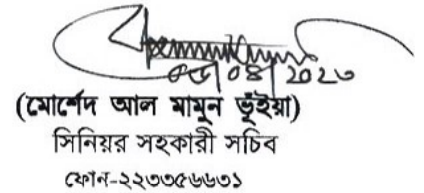 ০৬/০৪/২০২৩
(মোর্শেদ আল মামুন ভূঁইয়া)
সিনিয়র সহকারী সচিব
ফোন-২২৩৩৫৬৬৩১